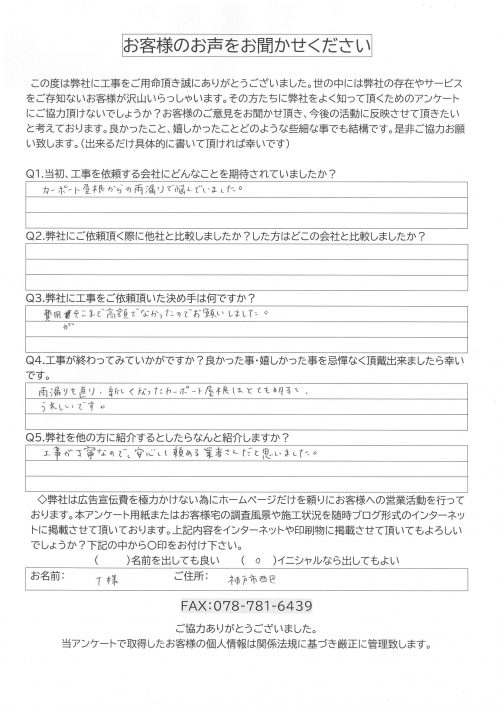 お客様のお声をお聞かせください
この度は弊社に工事をご用命頂き誠にありがとうございました。世の中には弊社の存在やサービス
をご存知ないお客様が沢山いらっしゃいます。その方たちに弊社をよく知って頂くためのアンケート
にご協力頂けないでしょうか?お客様のご意見をお聞かせ頂き、今後の活動に反映させて頂きたい
と考えております。良かったこと、嬉しかったことどのような些細な事でも結構です。是非ご協力お願
い致します。(出来るだけ具体的に書いて頂ければ幸いです)
Q1.当初、工事を依頼する会社にどんなことを期待されていましたか?
カーポート屋根からの雨漏りで悩んでいました。
Q2.弊社にご依頼頂く際に他社と比較しましたか?した方はどこの会社と比較しましたか?
Q3.弊社に工事をご依頼頂いた決め手は何ですか?
費用がそこまで高額でなかったのでお願いしました。
Q4.工事が終わってみていかがですか?良かった事・嬉しかった事を忌憚なく頂戴出来ましたら幸い
です。
雨漏りも直り、新しくなったカーポート屋根はとても明るく、
うれしいです。
Q5.弊社を他の方に紹介するとしたらなんと紹介しますか?
工事が丁寧なので、安心して頼める業者さんだと思いました。
◇弊社は広告宣伝費を極力かけない為にホームページだけを頼りにお客様への営業活動を行って
おります。本アンケート用紙またはお客様宅の調査風景や施工状況を随時ブログ形式のインターネッ
トに掲載させて頂いております。上記内容をインターネットや印刷物に掲載させて頂いてもよろしい
でしょうか?下記の中から〇印をお付け下さい。
( )名前を出しても良い ( ○ )イニシャルなら出してもよい
お名前: T様 ご住所: 神戸市西区
FAX:078-781-6439
ご協力ありがとうございました。
当アンケートで取得したお客様の個人情報は関係法規に基づき厳正に管理致します。